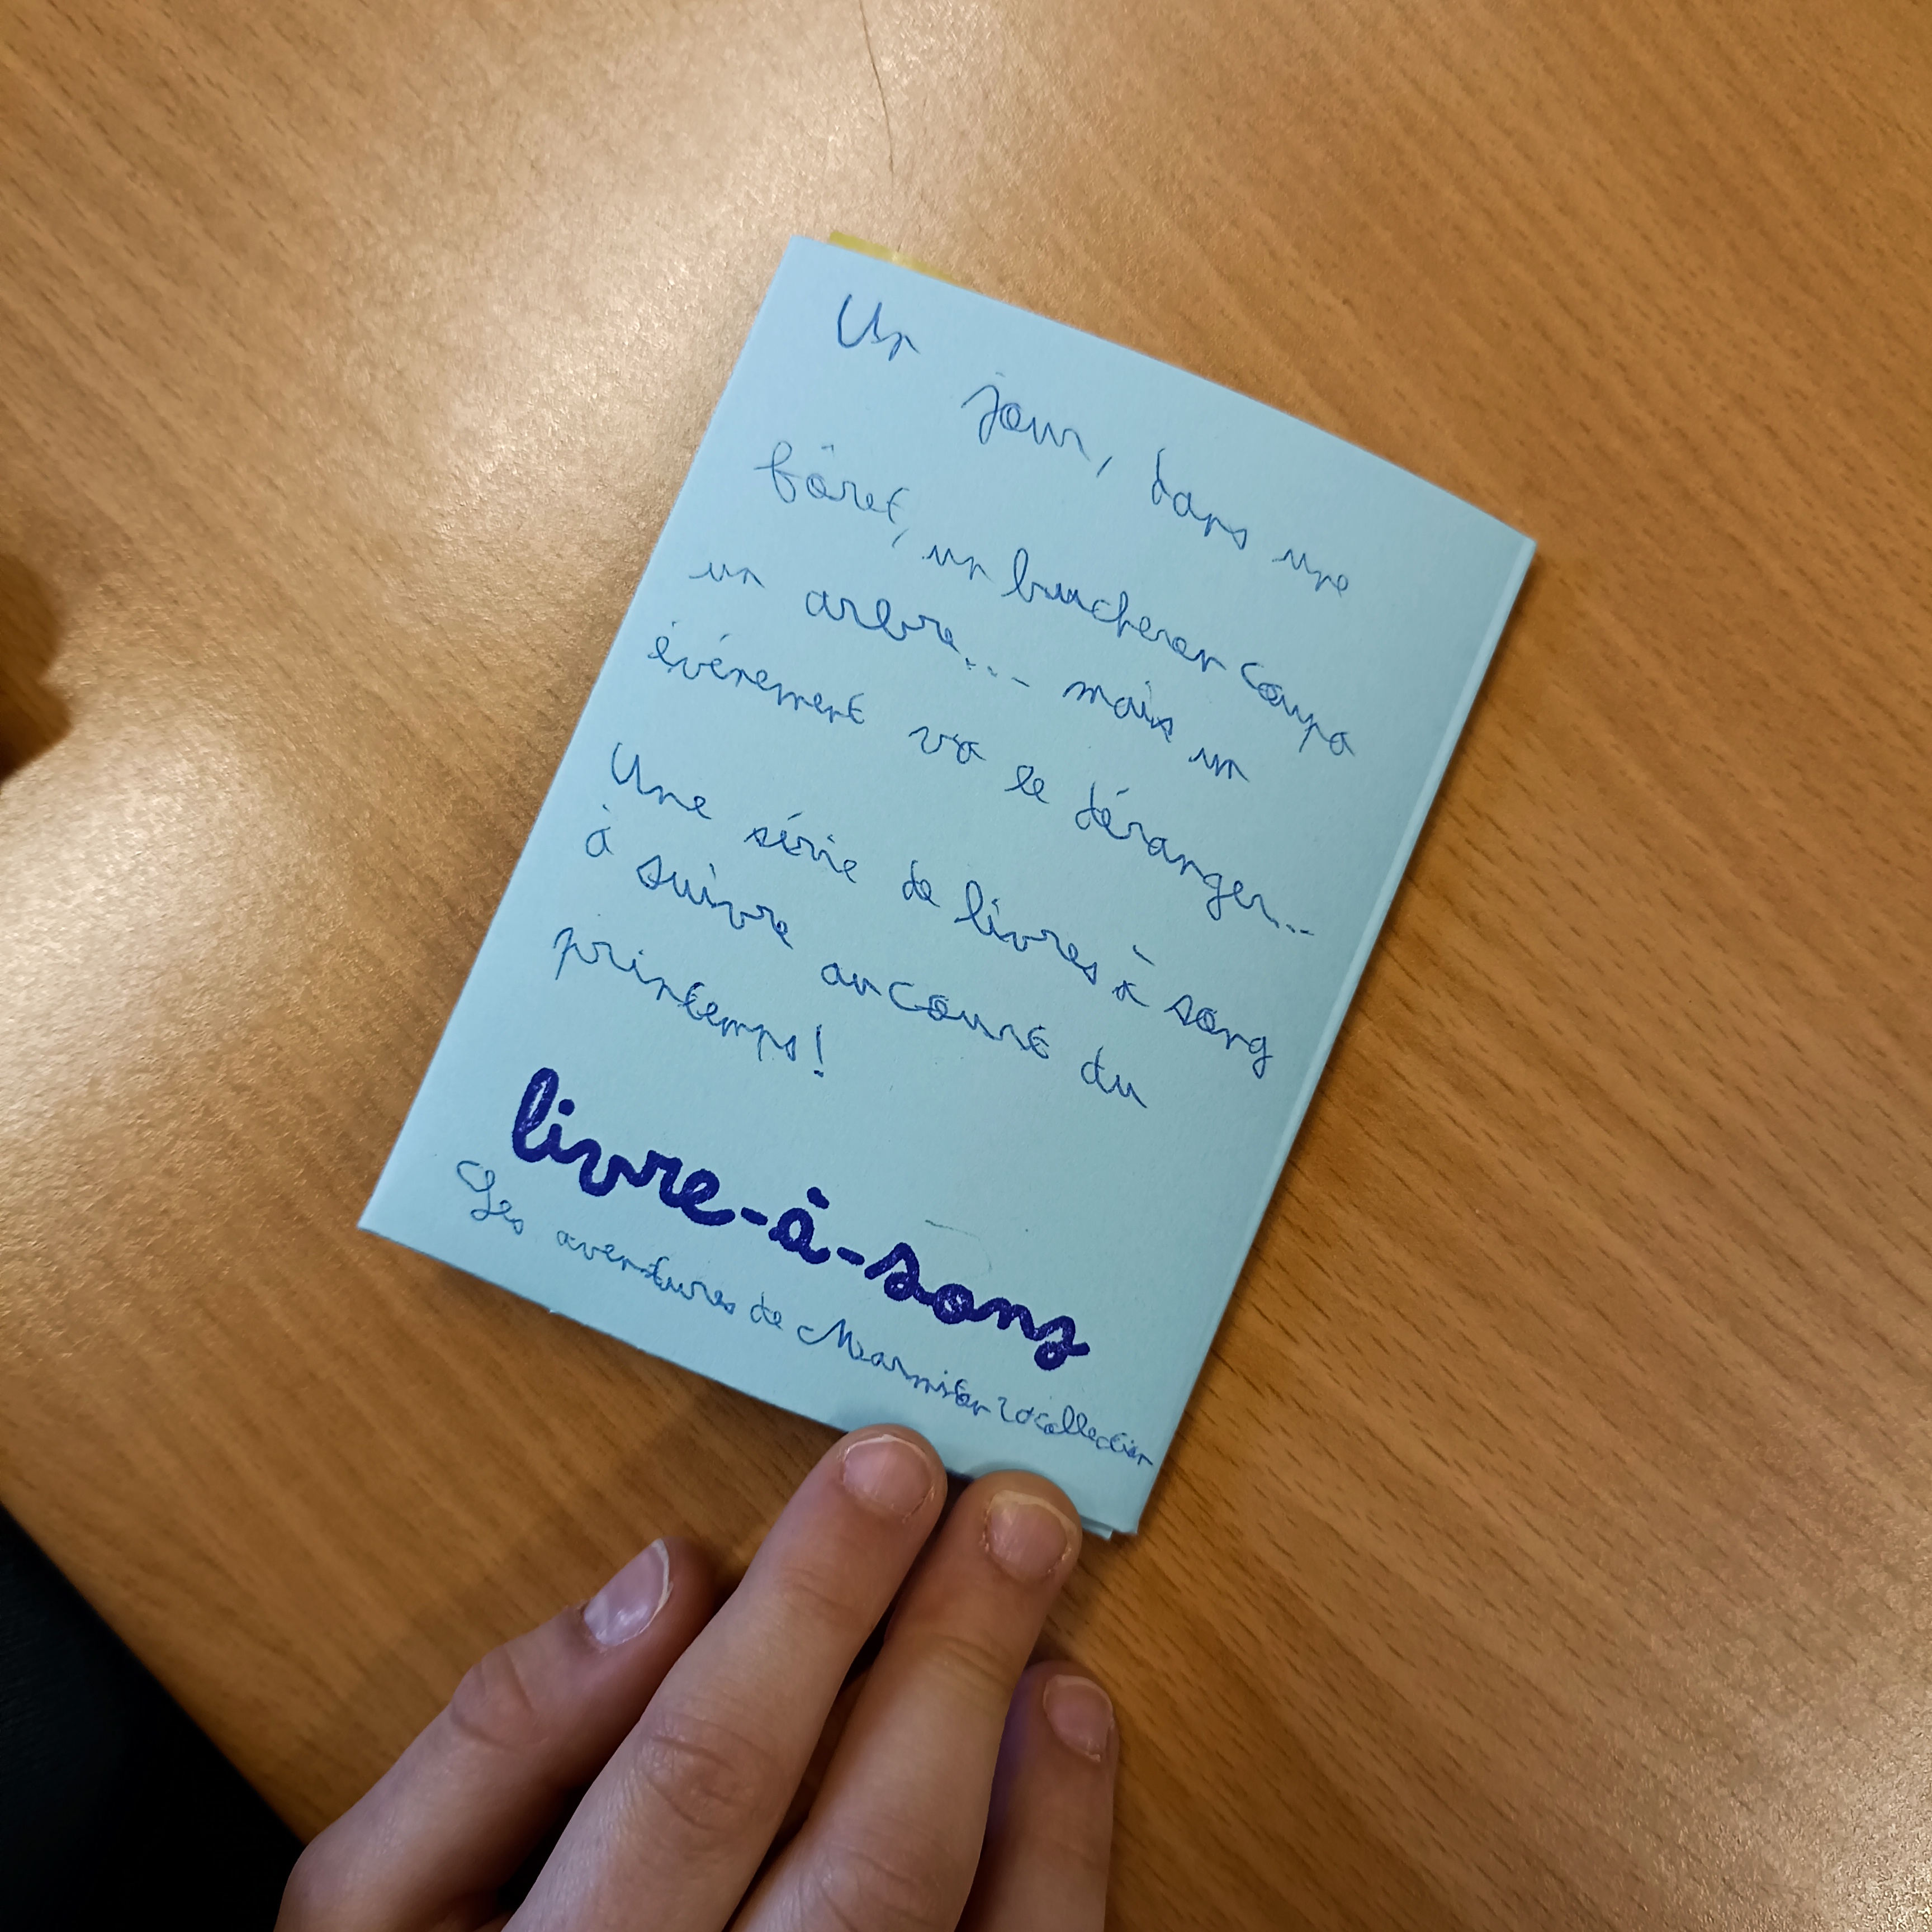 Un jour, dans une
fôret, un bucheron coupa
un arbre... mais un
événement va le déranger...
Une série de livres à song
à suivre au court du
printemps!
livre-à-song
Les aventures de Marmiton collection